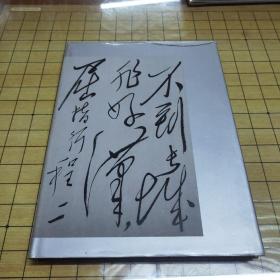 不到長城
非好漢
屈指行程二